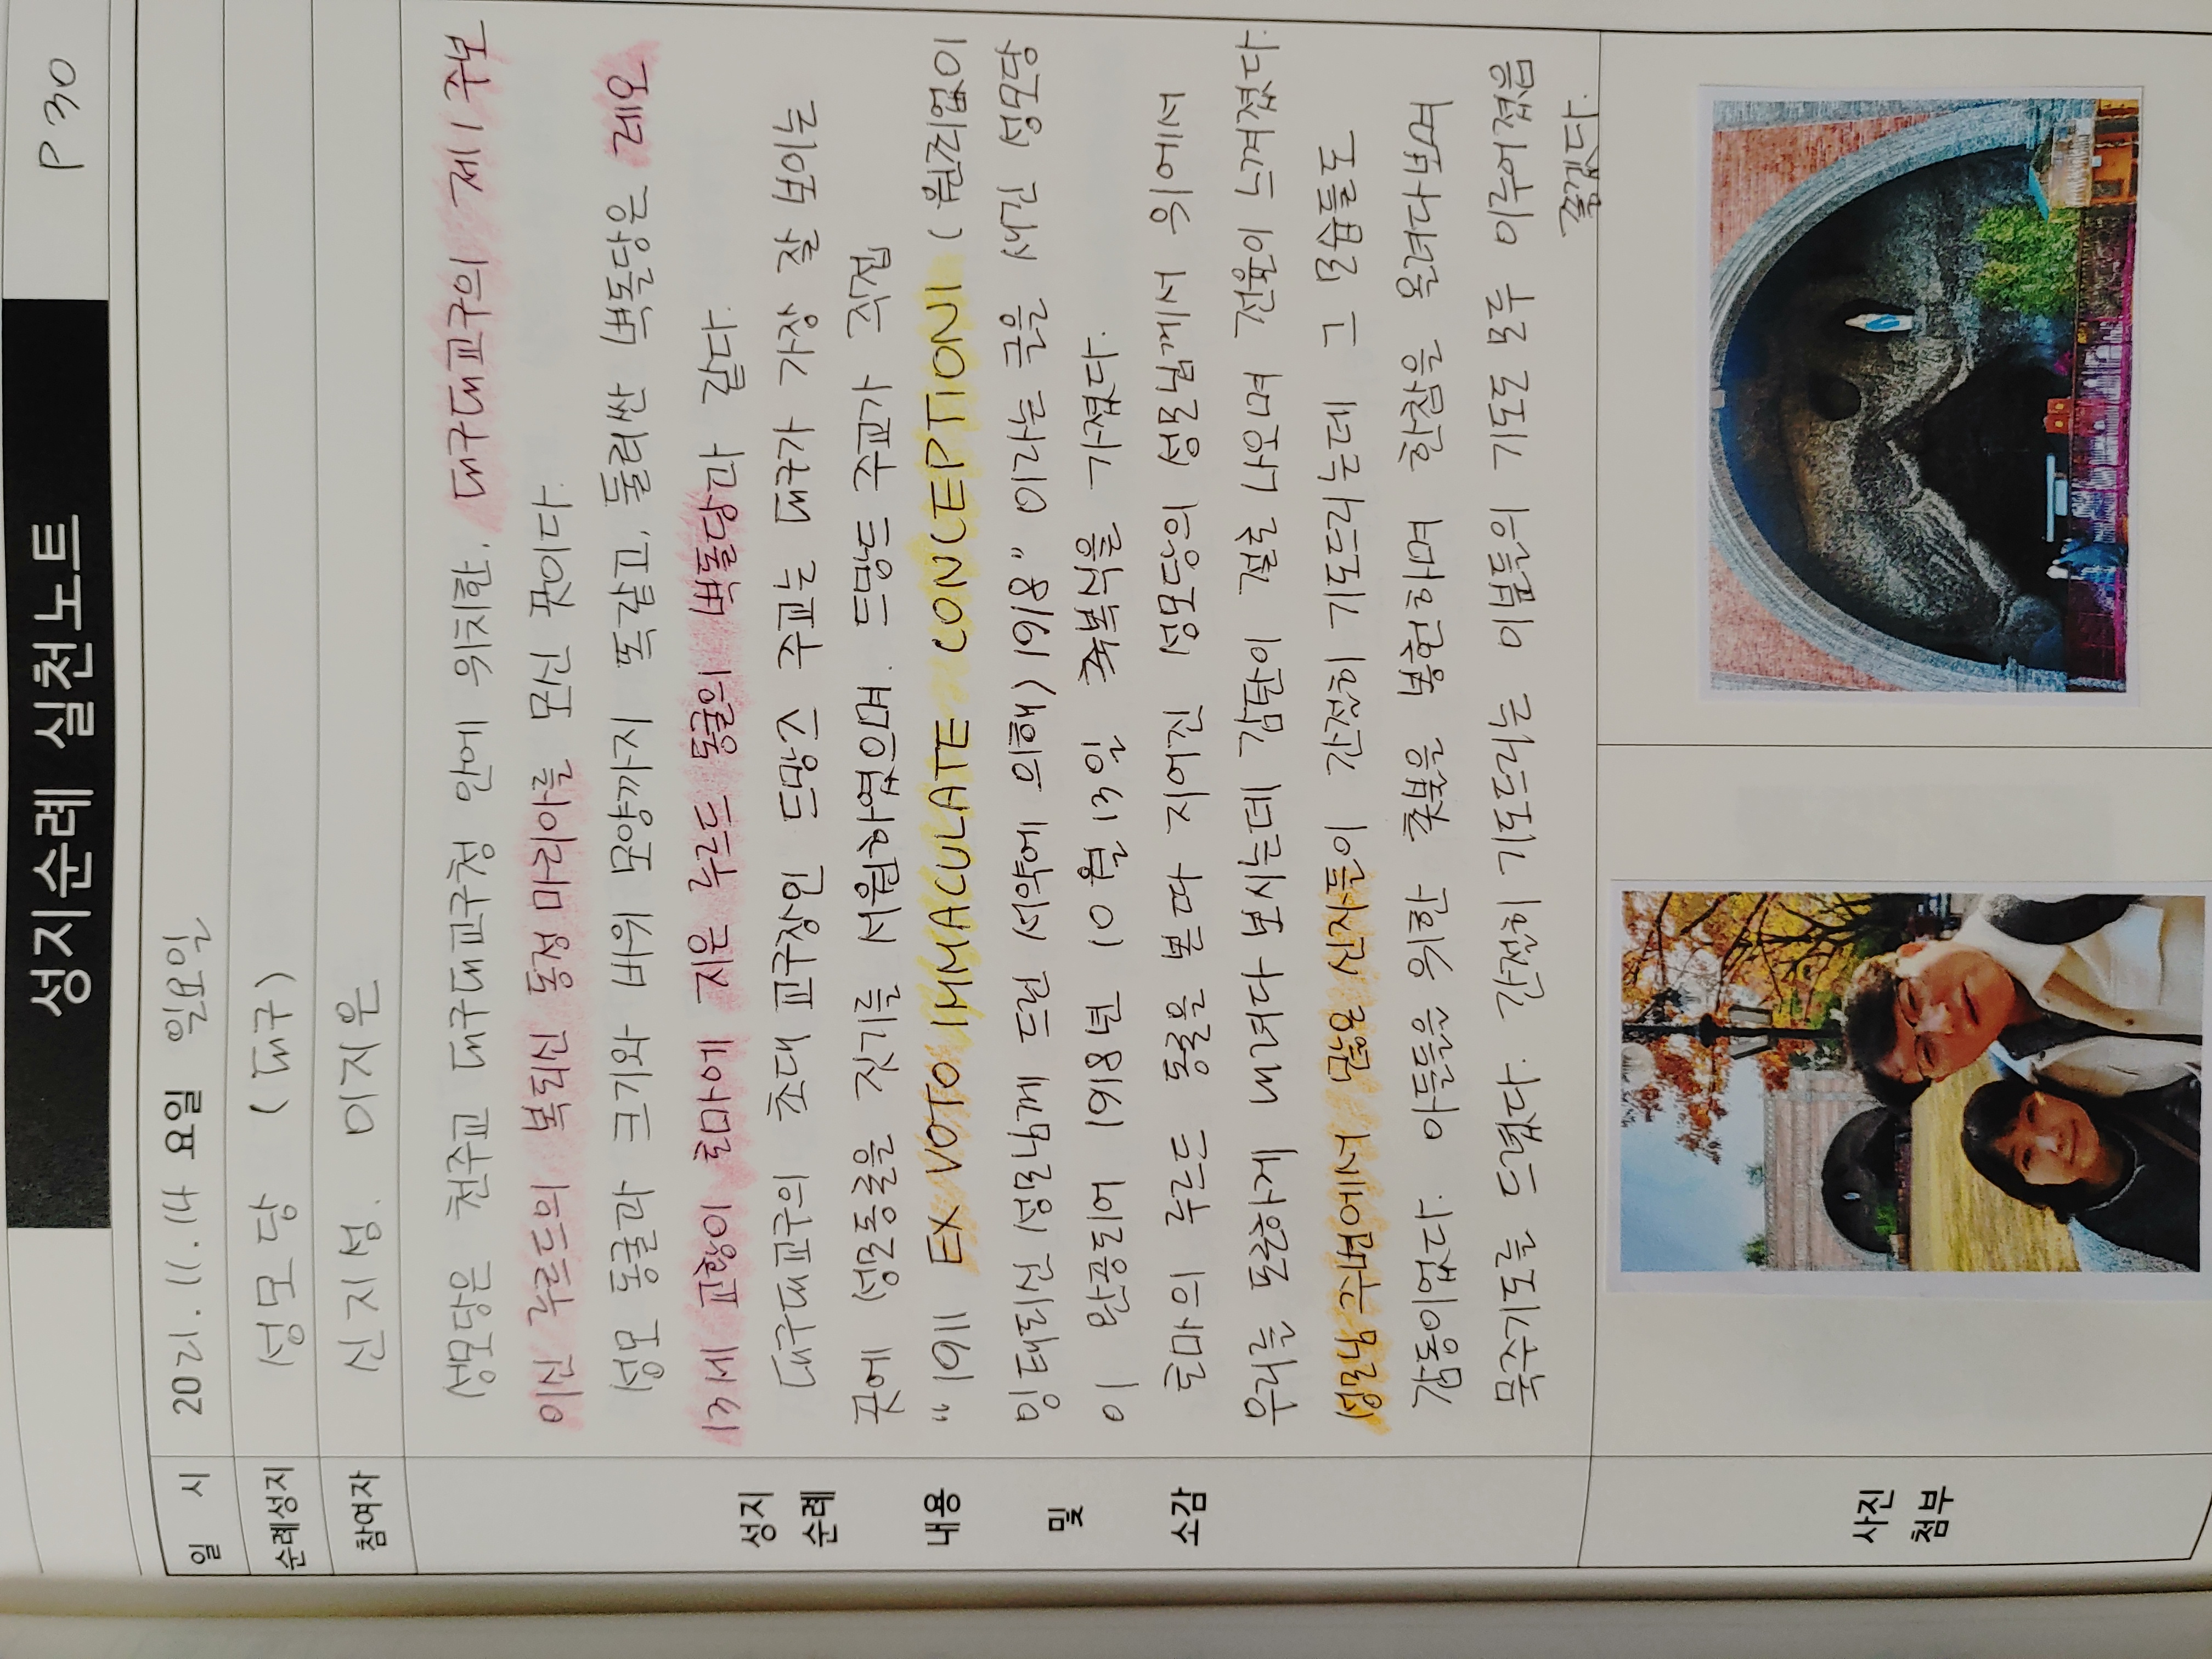 성지순례 실천노트
P 30
일 시
2021. 11. 14 요일 일요일
순례성지
성모당 (대구)
참여자
신지섬. 이지은
성지
순례
내용
및
소감
성모당은 천주교 대구대교구청 안에 위치한, 대구대교구의 제1주보
이신 루르드의 복되신 동정 마리아를 모신 곳이다.
성모 동굴과 크기와 바위 모양까지 똑같고, 둘러싼 벽돌당은 레오
13세 교황이 로마에 지은 루르드 동굴의 벽돌당과 같다.
대구대교구의 초대 교구장인 드망즈 주교는 대구가 가장 잘 보이는
곳에 성모동굴을 짓기를 서원하였으며. 드망드 주교가 직접
“1911 EX VOTO IMMACULATE CONCEPTIONI (원죄없이
잉태되신 성모님께 드린 서약에 의해) 1918” 이라는 글을 새긴 성모당
이 완공되어 1918년 10월 13일 축복식을 가졌다.
로마의 루르드 동굴을 본따 지어진 성모당의 성모님께서 위에서
우리를 포근하게 내려다 보시는데 감탄이 절로 나오며 전율이 느껴졌다.
성모님 주변에서 많은 신자들이 간절히 기도드리는데 그 모습들도
감동이었다. 아들들을 위한 촛불을 봉헌하며 한참을 올려다보며
묵주기도를 드렸다. 간절히 기도드리는 이분들의 기도도 모두 이루어졌음
좋겠다.
사진
첨부